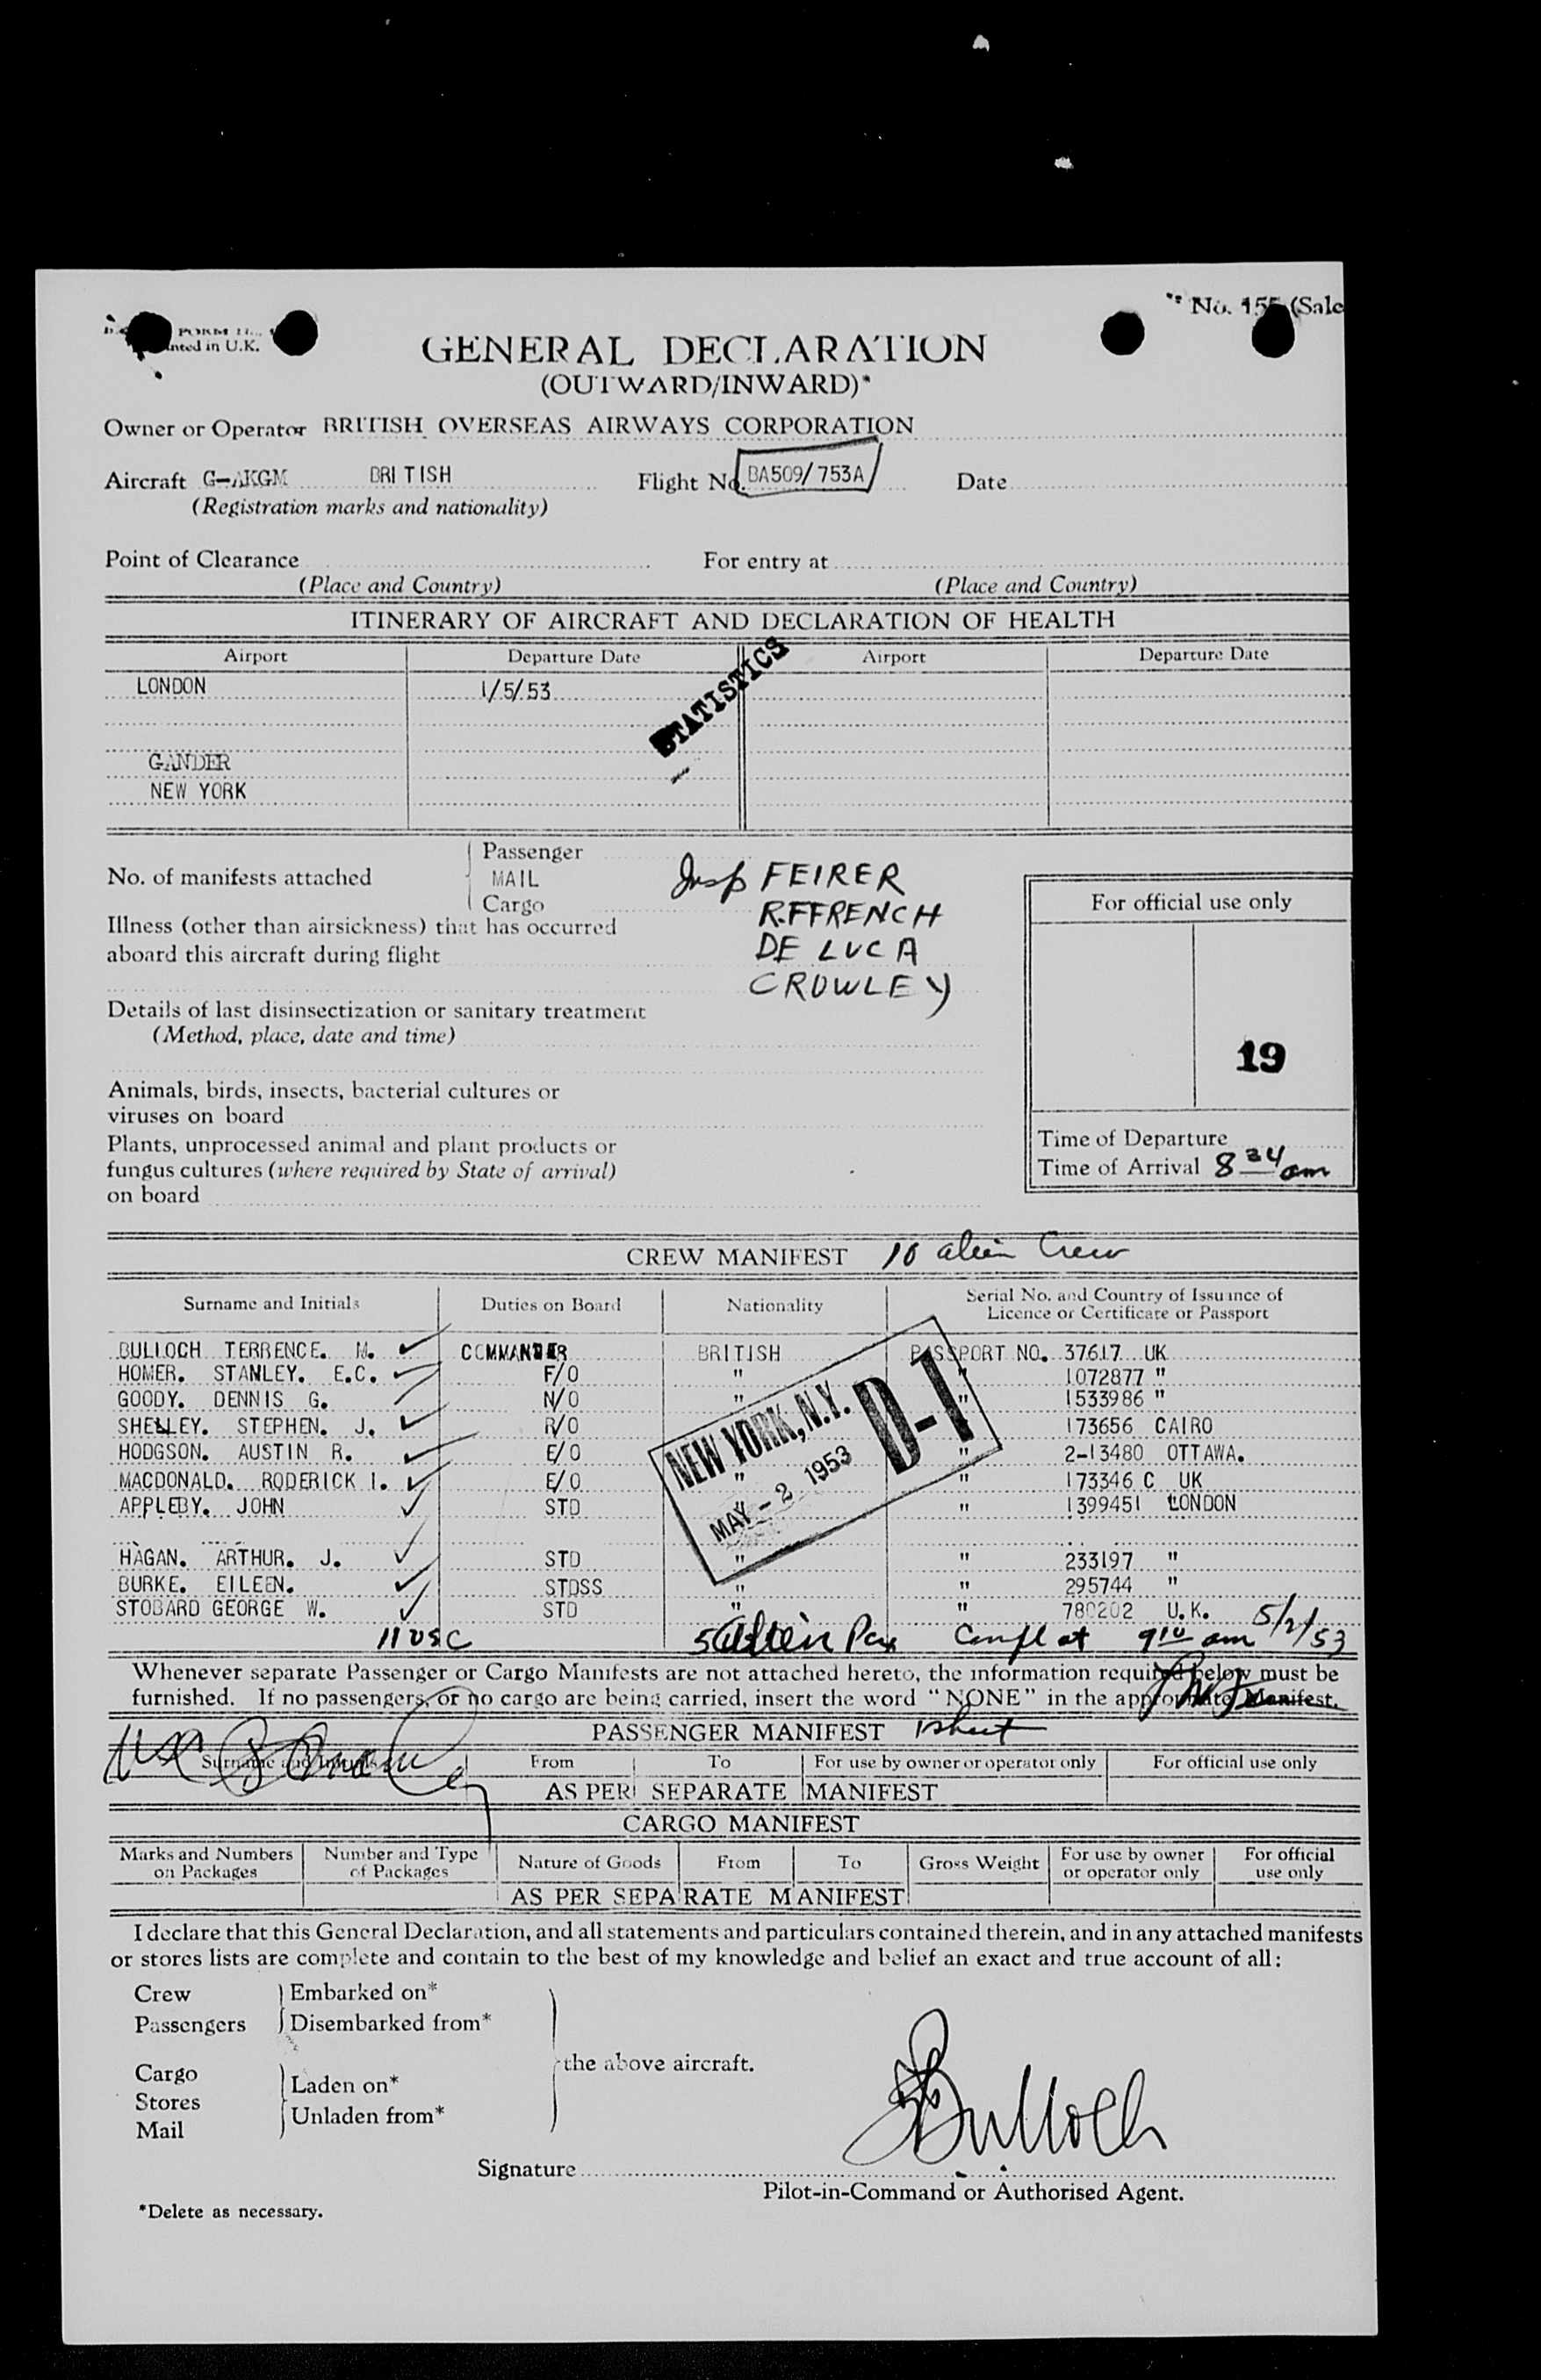 No. 155 (Sale
FORM
nted in U.K.
GENERAL DECLARATION
(OUTWARD/INWARD)*
Owner or Operator BRITISH OVERSEAS AIRWAYS CORPORATION
Aircraft G-AKGM BRITISH Flight No. BA509/753A Date
(Registration marks and nationality)
Point of Clearance For entry at
(Place and Country) (Place and Country)
ITINERARY OF AIRCRAFT AND DECLARATION OF HEALTH
Airport Departure Date Airport Departure Date
LONDON 1/5/53
STATISTICS
GANDER
NEW YORK
No. of manifests attached
Passenger
MAIL
Cargo
Insp FEIRER
R.FFRENCH
DE LUCA
CROWLEY
Illness (other than airsickness) that has occurred
aboard this aircraft during flight
Details of last disinsectization or sanitary treatment
(Method, place, date and time)
Animals, birds, insects, bacterial cultures or
viruses on board
Plants, unprocessed animal and plant products or
fungus cultures (where required by State of arrival)
on board
For official use only
19
Time of Departure
Time of Arrival 8 34 am
CREW MANIFEST 10 alien Crew
Surname and Initials Duties on Board Nationality Serial No. and Country of Issuance of
Licence or Certificate or Passport
BULLOCH TERRENCE. M. COMMANDER BRITISH PASSPORT NO. 37617 UK
HOMER. STANLEY. E.C. F/O " " 1072877 "
GOODY. DENNIS G. N/O " " 1533986 "
SHELLEY. STEPHEN. J. R/O " 173656 CAIRO
HODGSON. AUSTIN R. E/O " 2-13480 OTTAWA.
MACDONALD. RODERICK I. E/O " " 173346 C UK
APPLEBY. JOHN STD " " 1399451 LONDON
HAGAN. ARTHUR. J. STD " " 233197 "
BURKE. EILEEN. STDSS " " 295744 "
STOBARD GEORGE W. STD " " 780202 U.K.
NEW YORK, N.Y. D-1
MAY - 2 1953
11 USC 5 Alien Pax Compl at 9 10 am 5/2/53
Whenever separate Passenger or Cargo Manifests are not attached hereto, the information required below must be
furnished. If no passengers, or no cargo are being carried, insert the word "NONE" in the appropriate Manifest.
PASSENGER MANIFEST 1 sheet
Surname and Initials From To For use by owner or operator only For official use only
AS PER SEPARATE MANIFEST
CARGO MANIFEST
Marks and Numbers on Packages Number and Type of Packages Nature of Goods From To Gross Weight For use by owner or operator only For official use only
AS PER SEPARATE MANIFEST
I declare that this General Declaration, and all statements and particulars contained therein, and in any attached manifests
or stores lists are complete and contain to the best of my knowledge and belief an exact and true account of all:
Crew
Passengers
Embarked on*
Disembarked from*
Cargo
Stores
Mail
Laden on*
Unladen from*
the above aircraft.
Bulloch
Signature
Pilot-in-Command or Authorised Agent.
*Delete as necessary.